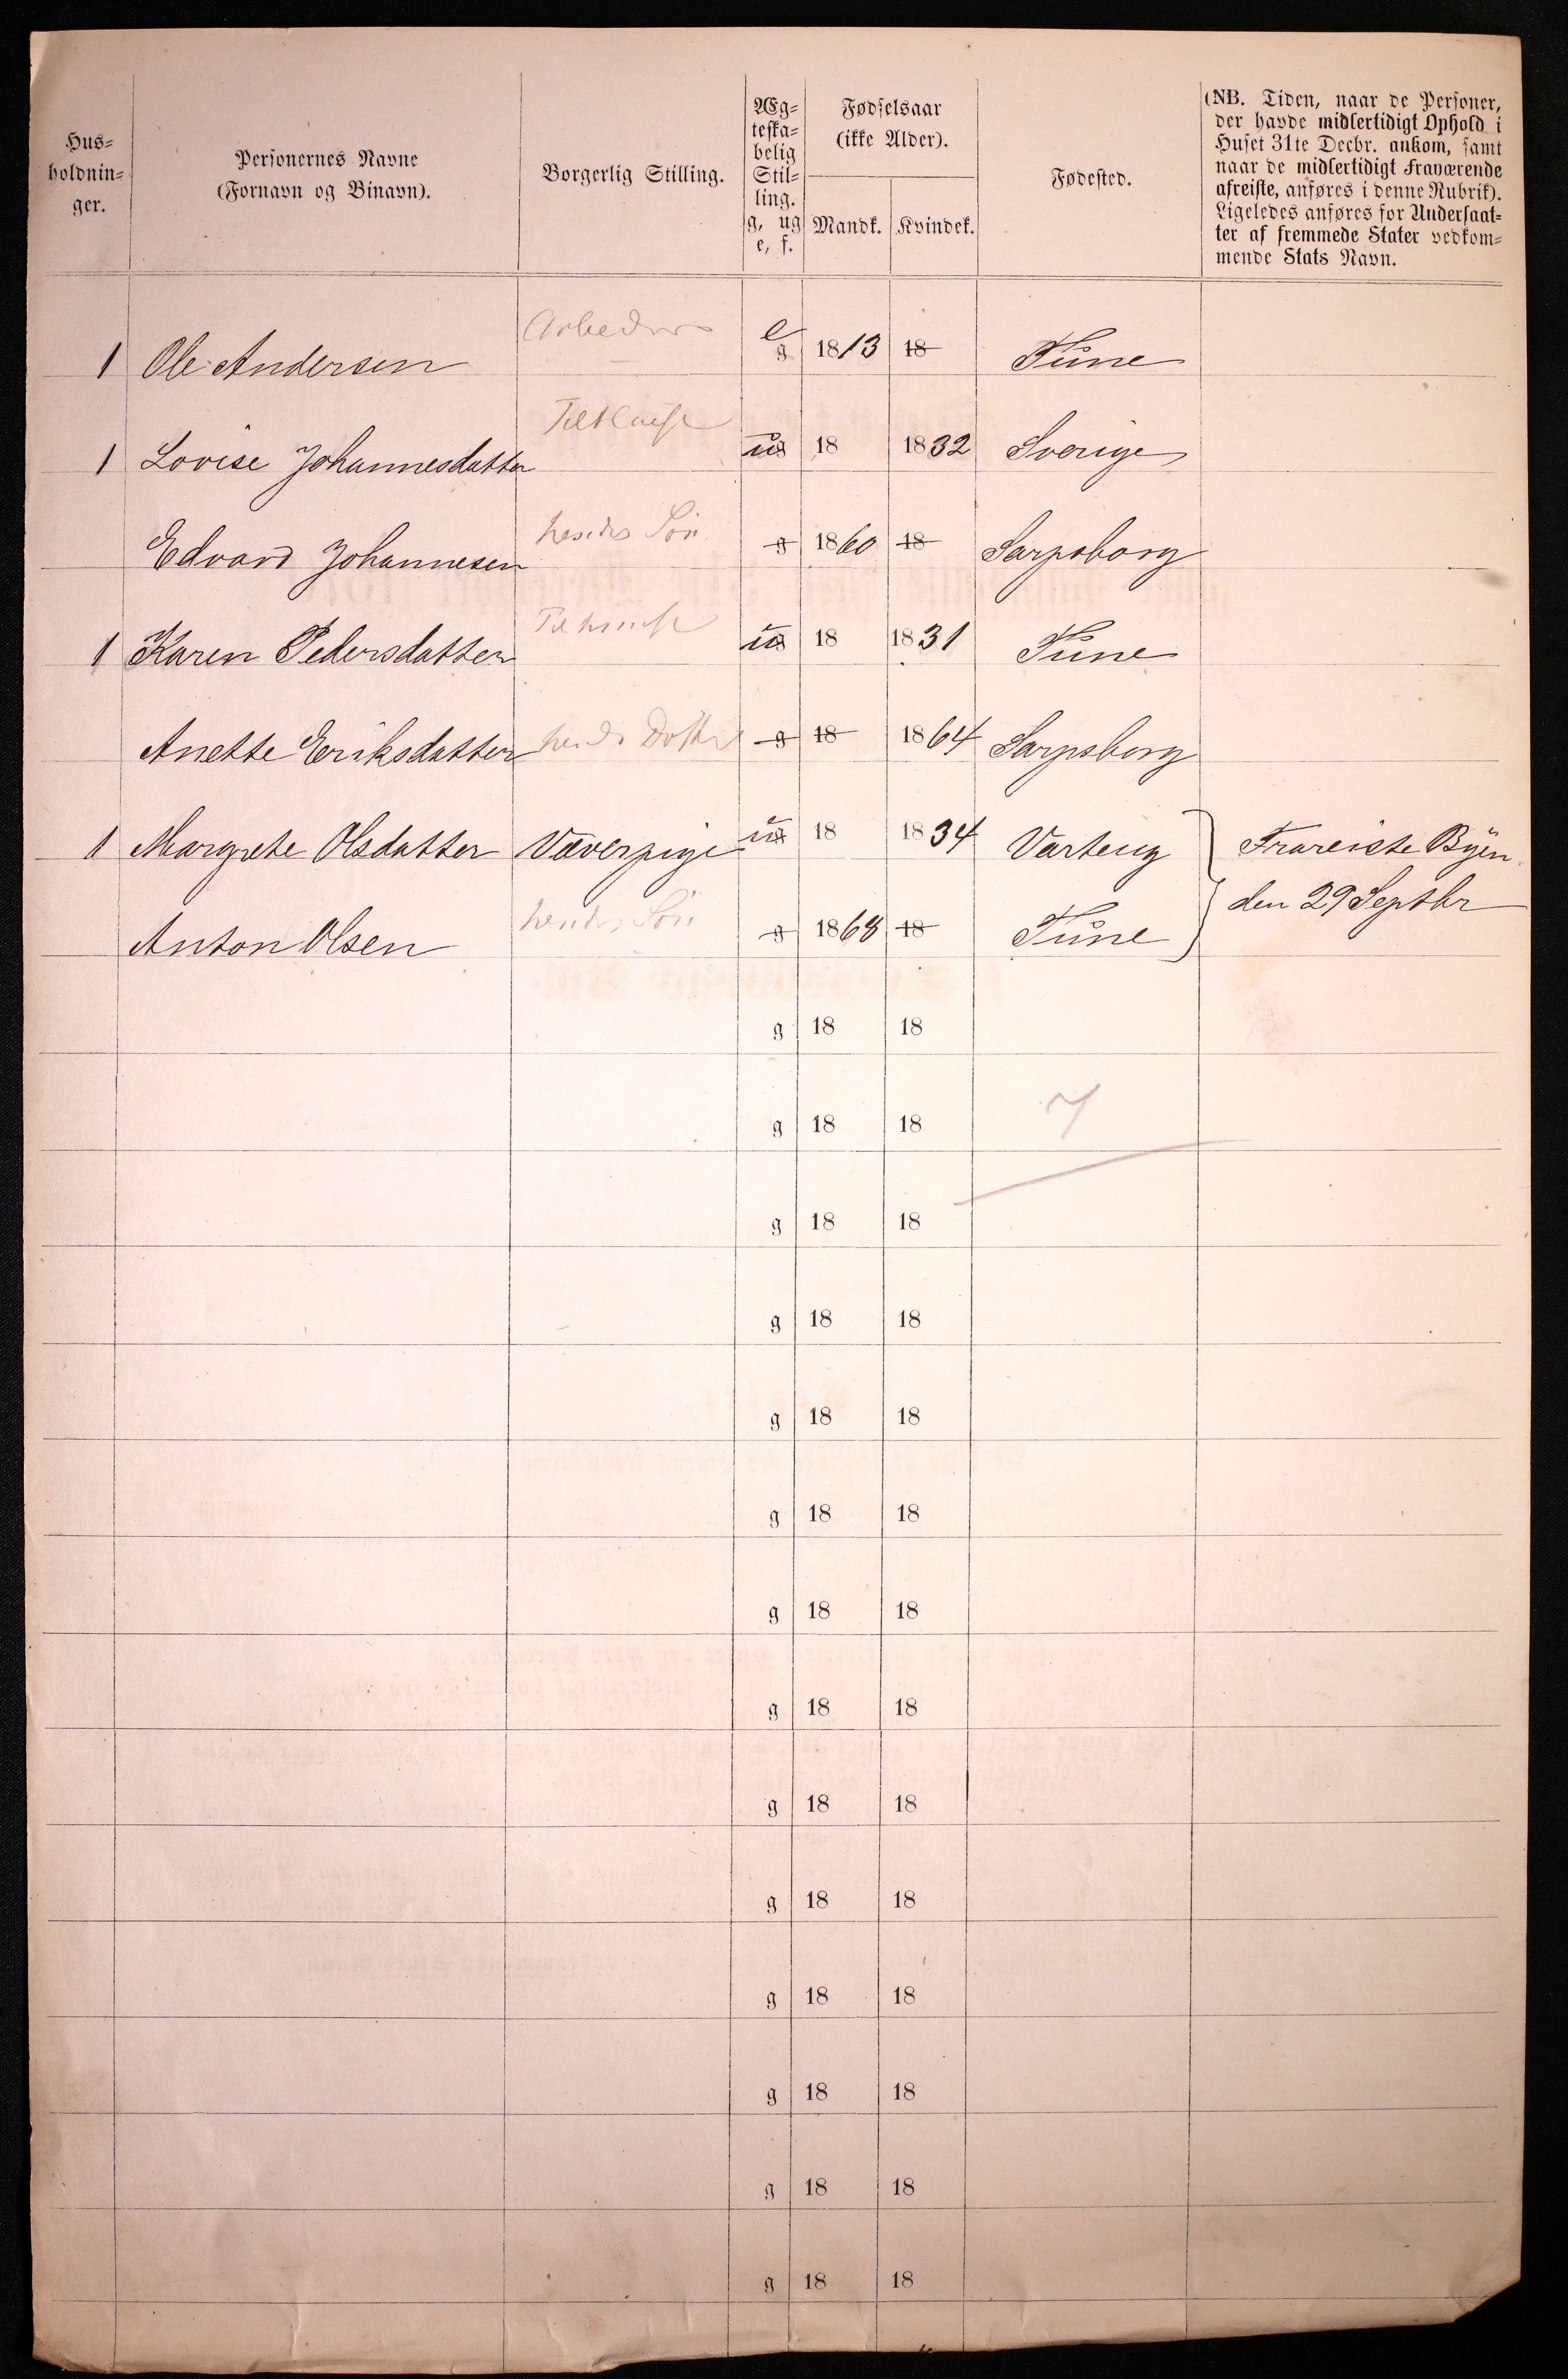 Hus=
holdnin=
ger.
Personernes Navne
(Fornavn og Binavn).
Borgerlig Stilling.
Æg=
teska=
belig
Stil=
ling.
g, ug
e, f.
Fødselsaar
(ikke Alder).
Mandk. Kvindek.
Fødested.
(NB. Tiden, naar de Personer,
der havde midlertidigt Ophold i
Huset 31te Decbr. ankom, samt
naar de midlertidigt Fraværende
afreiste, anføres i denne Rubrik).
Ligeledes anføres for Undersaat=
ter af fremmede Stater vedkom=
mende Stats Navn.
1 Ole Andersen Arbeder e g 1813 18 Tune
1 Lovise Johannesdatter ug 18 1832 Sverige
Edvard Johannesen hendes Sön g 1860 18 Sarpsborg
1 Karen Pedersdatter ug 18 1831 Tune
Anette Eriksdatter g 18 1864 Sarpsborg
1 Margrete Olsdatter Væverpige ug 18 1834 Varteig Frareiste Byen
den 29 Septbr
Anton Olsen hendes Sön g 1868 18 Tune
g 18 18
g 18 18
7
g 18 18
g 18 18
g 18 18
g 18 18
g 18 18
g 18 18
g 18 18
g 18 18
g 18 18
g 18 18
g 18 18
g 18 18